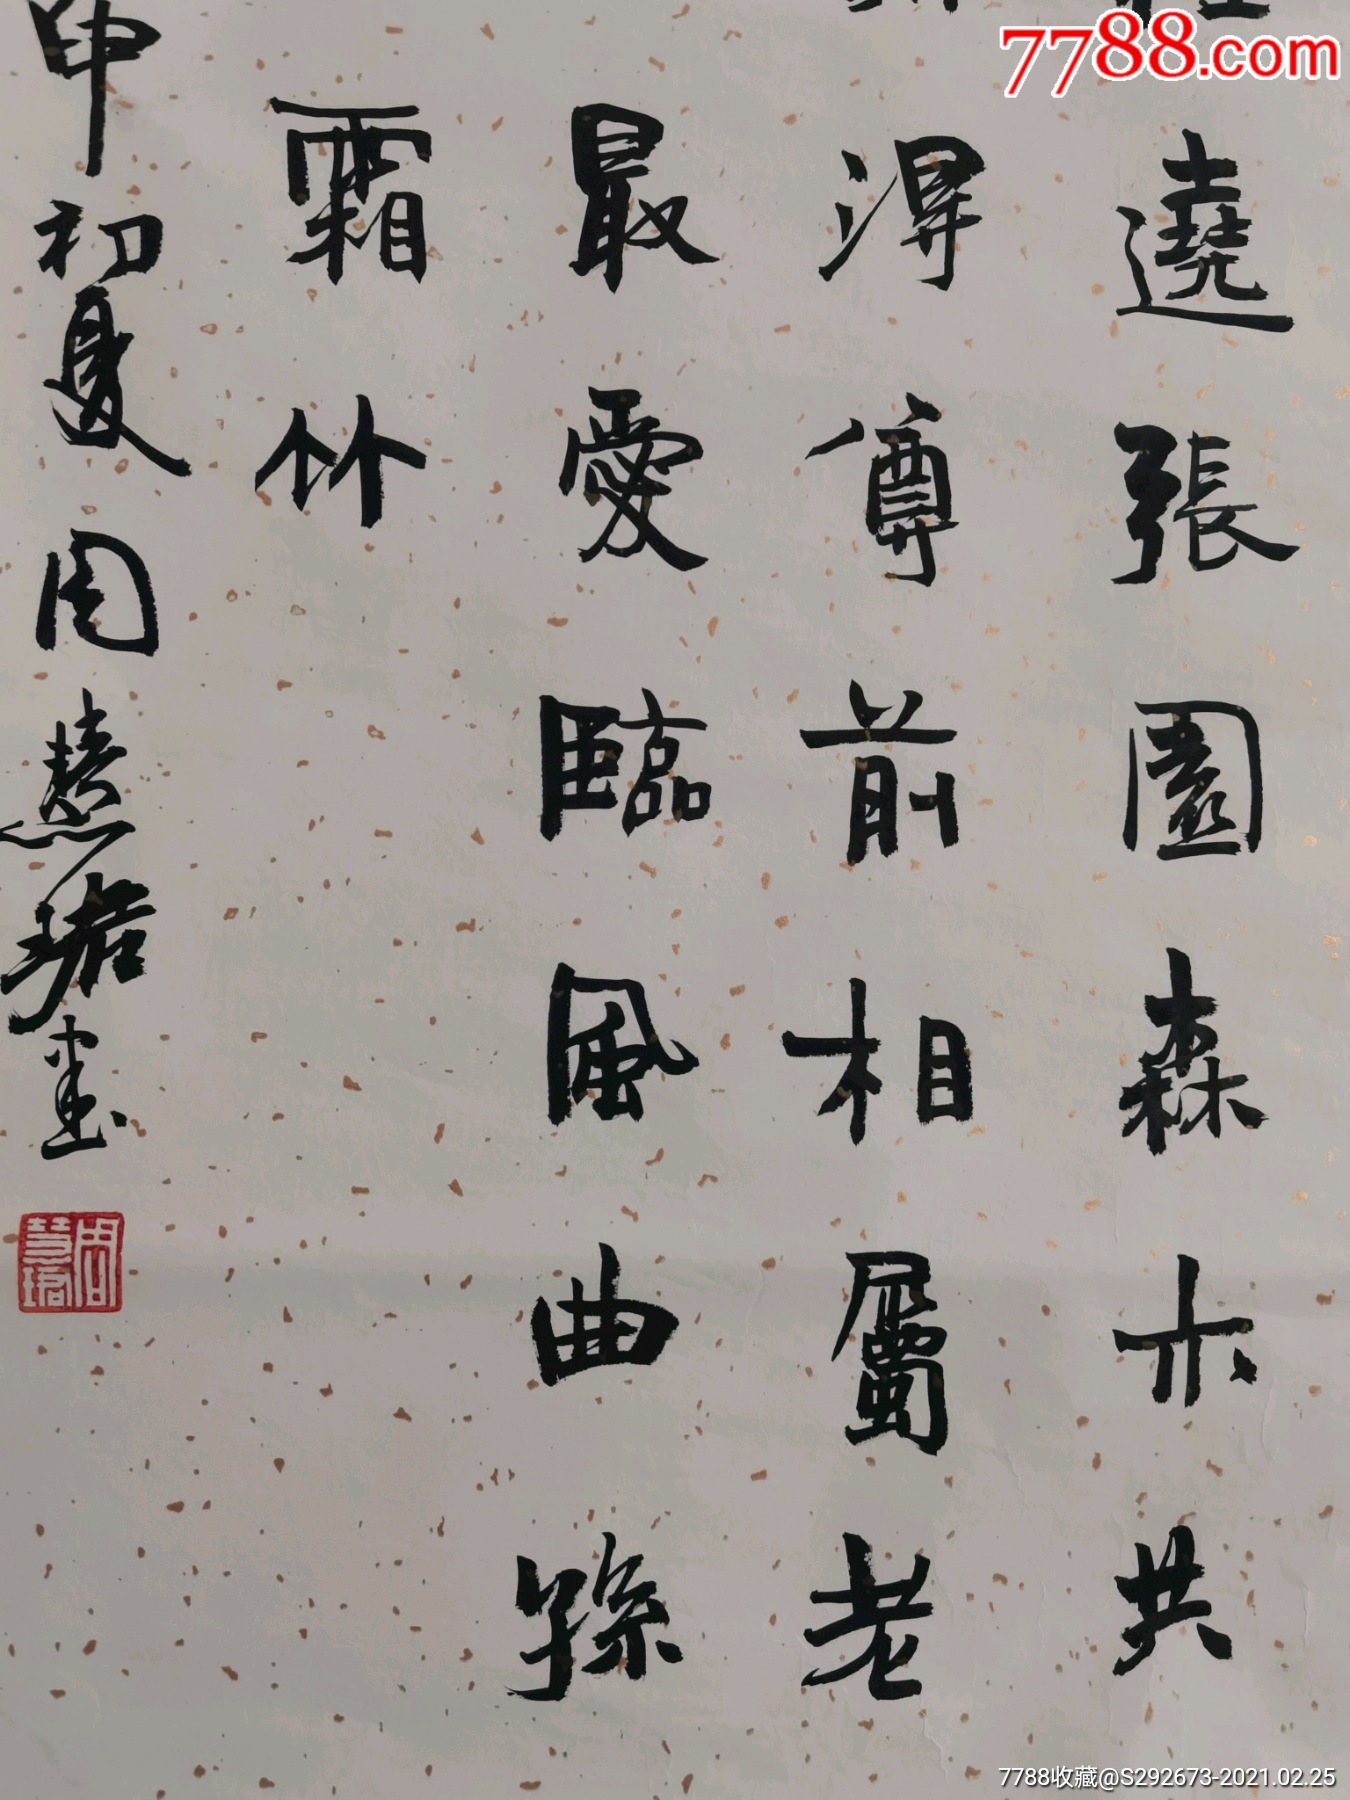 7788.com
遶張園森木共
得尊前相屬老
最愛臨風曲孫
霜竹
申初夏周慧珺書
周慧珺
7788收藏@S292673-2021.02.25